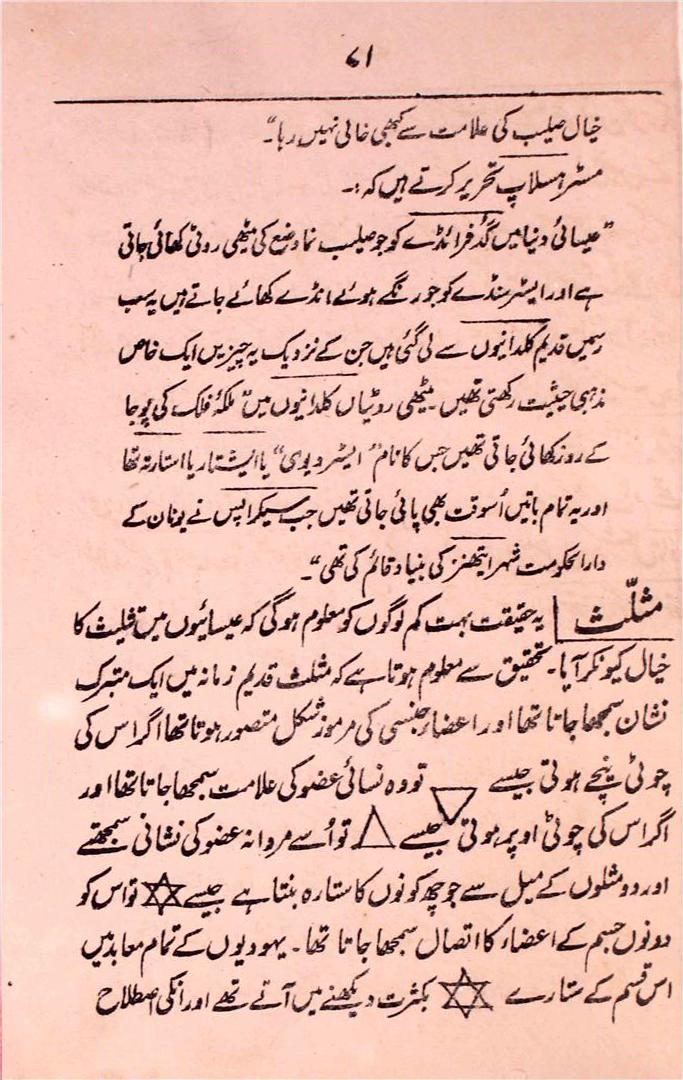 ۷۱
خیال صلیب کی علامت سے کبھی خالی نہیں رہا"۔
مسٹر ہسلاپ تحریر کرتے ہیں کہ :۔
"عیسائی دنیا میں گڈ فرائڈے کو جو صلیب نما وضع کی میٹھی روٹی کھائی جاتی
ہے اور ایسٹر سنڈے کو جو رنگے ہوئے انڈے کھائے جاتے ہیں یہ سب
رسمیں قدیم کلدانیوں سے لی گئی ہیں جن کے نزدیک یہ چیزیں ایک خاص
مذہبی حیثیت رکھتی تھیں۔ میٹھی روٹیاں کلدانیوں میں "ملکۂ فلک کی پوجا
کے روز کھائی جاتی تھیں جس کا نام "ایسٹر دیوی" یا ایشتار یا استارتہ تھا
اور یہ تمام باتیں اُسوقت بھی پائی جاتی تھیں جب سیکراپس نے یونان کے
دارالحکومت شہر ایتھنز کی بنیاد قائم کی تھی"۔
مثلّث یہ حقیقت بہت کم لوگوں کو معلوم ہوگی کہ عیسائیوں میں تثلیث کا
خیال کیونکر آیا۔ تحقیق سے معلوم ہوتا ہے کہ مثلث قدیم زمانہ میں ایک متبرک
نشان سمجھا جاتا تھا اور اعضاء جنسی کی مرموز شکل متصور ہوتا تھا اگر اس کی
چوٹی نیچے ہوتی جیسے ▽ تو وہ نسائی عضو کی علامت سمجھا جاتا تھا اور
اگر اس کی چوٹی اوپر ہوتی جیسے △ تو اُسے مردانہ عضو کی نشانی سمجھتے
اور دو مثلثوں کے میل سے جو چھ کونوں کا ستارہ بنتا ہے جیسے ✡ تو اس کو
دونوں جسم کے اعضاء کا اتصال سمجھا جاتا تھا۔ یہودیوں کے تمام معابد میں
اس قسم کے ستارے ✡ بکثرت دیکھنے میں آتے تھے اور انکی اصطلاح